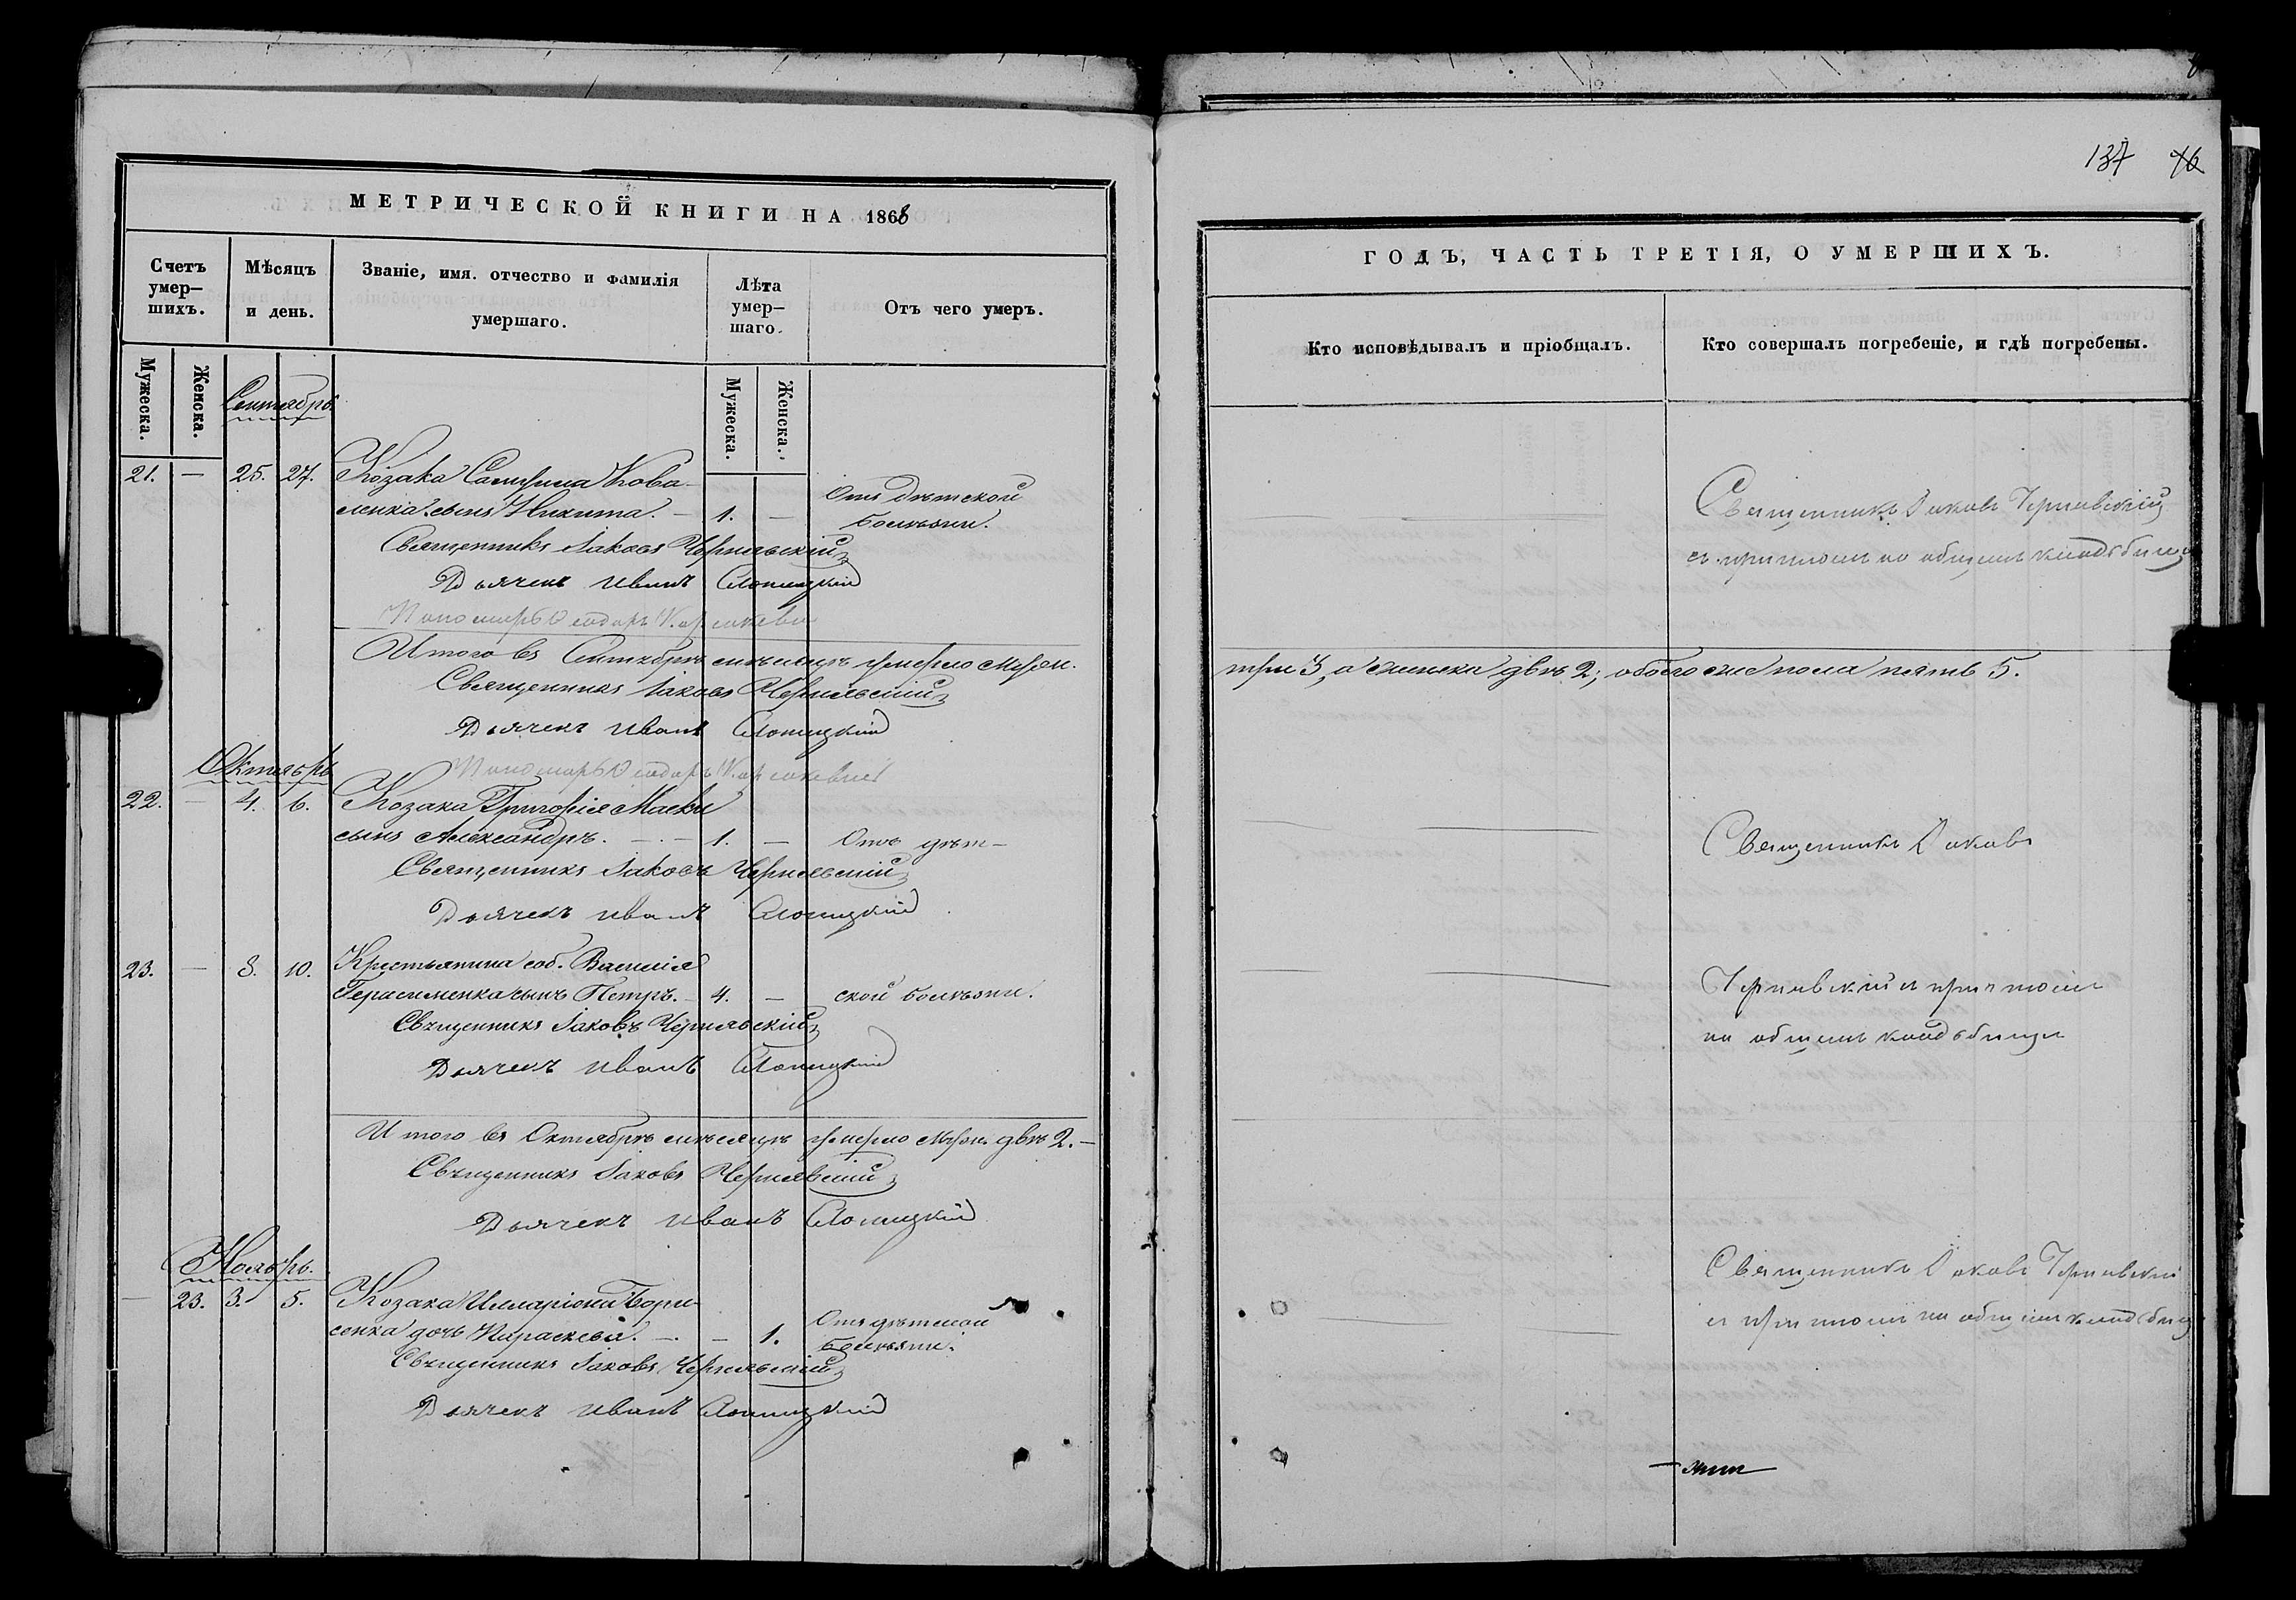 137 76
МЕТРИЧЕСКОЙ КНИГИ НА 1868
Счетъ умер-шихъ.
Мѣсяцъ и день.
Званіе, имя. отчество и фамилія умершаго.
Лѣта умер-шаго.
Отъ чего умеръ.
Мужеска.
Женска.
Мужеска.
Женска.
Сентябрь.
21. — 25. 27. Козака Кова-
ленка сынъ Никита. — 1. — Отъ дѣтской
болѣзни.
Священникъ Іаковъ Чернявскій
Дьячекъ Иванъ
Пономарь
Итого въ Сентябрѣ мѣсяцѣ умерло Муж.
Священникъ Іаковъ Чернявскій
Дьячекъ Иванъ
Пономарь
Октябрь
22. — 4. 6. Козака Григорія
сынъ Александръ. — 1. — Отъ дѣт-
Священникъ Іаковъ Чернявскій
Дьячекъ Иванъ
23. — 8. 10. Крестьянина соб. Василія
Герасименка сынъ Петръ. — 4. — ской болѣзни.
Священникъ Іаковъ Чернявскій
Дьячекъ Иванъ
Итого въ Октябрѣ мѣсяцѣ умерло Муж. двѣ 2. —
Священникъ Іаковъ Чернявскій
Дьячекъ Иванъ
Ноябрь.
— 23. 3. 5. Козака Илларіона Бори-
сенка дочь Параскева. — — 1. Отъ дѣтской
болѣзни.
Священникъ Іаковъ Чернявскій
Дьячекъ Иванъ
ГОДЪ, ЧАСТЬ ТРЕТІЯ, О УМЕРШИХЪ.
Кто исповѣдывалъ и пріобщалъ.
Кто совершалъ погребеніе, и гдѣ погребены.
Священникъ Іаковъ Чернявскій
съ причтомъ на общемъ кладбищѣ
три 3, а женска двѣ 2; обоего же пола пять 5.
Священникъ Іаковъ
Чернявскій съ причтомъ
на общемъ кладбищѣ
Священникъ Іаковъ Чернявскій
съ причтомъ на общемъ кладбищѣ